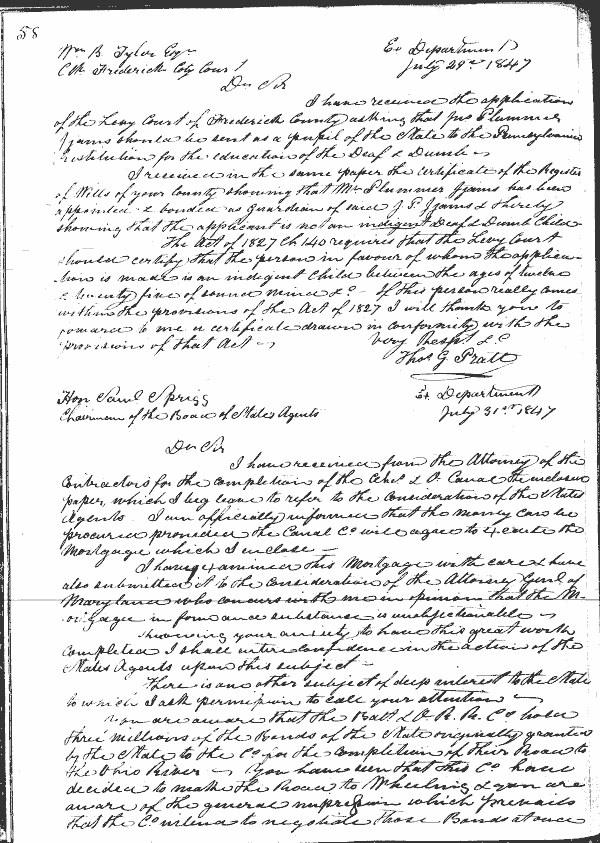 58
Wm B. Tyler Esqr
Clk Frederick Coty Court
Ex Department
July 29th 1847
Dr Sir
I have received the application
of the Levy Court of Frederick County asking that Jno Plummer
Ijams should be sent as a pupil of the State to the Pennsylvania
institution for the education of the Deaf & Dumb
I received in the same paper the certificate of the Register
of Wills of your County showing that Mr Plummer Ijams has been
appointed & bonded as Guardian of said J. P. Ijams & thereby
showing that the applicant is not an indigent Deaf & Dumb Child
The Act of 1827 Ch 140 requires that the Levy Court
should certify that the person in favour of whom the applica-
tion is made is an indigent Child between the ages of twelve
& twenty five of sound mind &c - If this person really comes
within the provisions of the Act of 1827 I will thank you to
forward to me a certificate drawn in conformity with the
provisions of that Act
Very Respt &c
Thos G Pratt
Hon Saml Sprigg
Chairman of the Board of States Agents
Ex Department
July 31st 1847
Dr Sir
I have received from the Attorney of the
Contractors for the completion of the Ches & O. Canal the enclosed
paper, which I beg leave to refer to the consideration of the States
Agents. I am officially informed that the money can be
procured provided the Canal Co will agree to Execute the
Mortgage which I enclose -
I have examined this Mortgage with care & have
also submitted it to the consideration of the Attorney Genrl of
Maryland who concurs with me in opinion that the M-
ortgage in form and substance is unobjectionable
Knowing your anxiety to have this great work
completed I shall entire confidence in the action of the
States Agents upon this subject -
There is another subject of deep interest to the State
to which I ask permission to call your attention
You are aware that the Balt & O. R. R. Co holds
three millions of the Bonds of the State originally granted
by the State to the Co for the completion of their Road to
the Ohio River - You have seen that this Co have
decided to make the Road to Wheeling & you are
aware of the general impression which prevails
that the Co intend to negotiate those Bonds at once